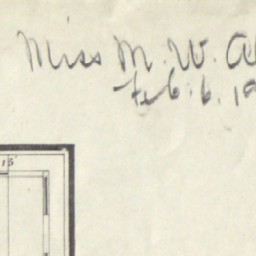 Miss M. W. A
Feb. 6. 19
15'